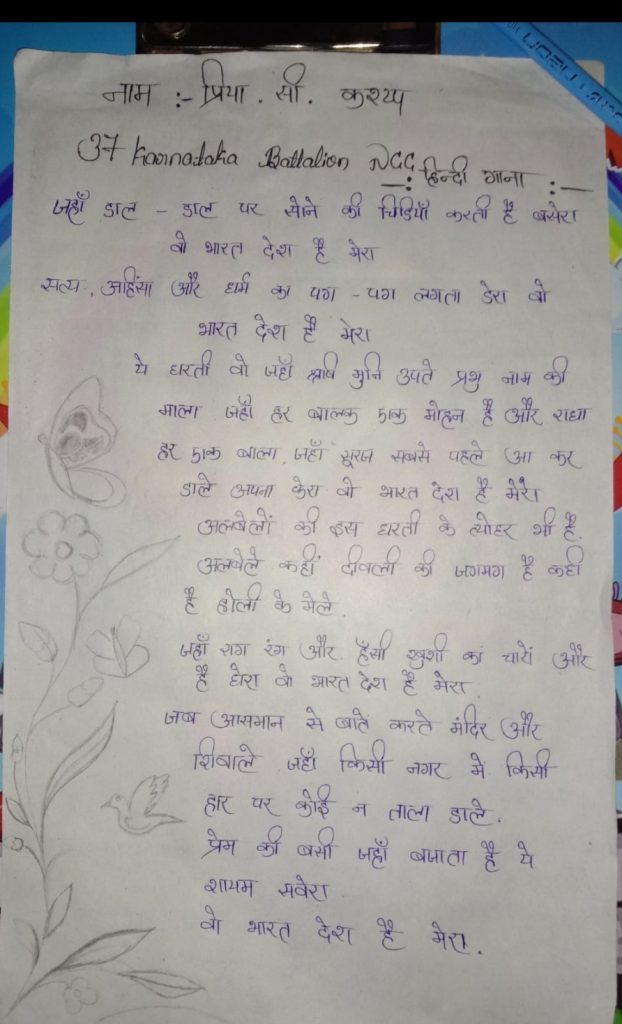 नाम :- प्रिया . सी. कश्यप
37 Karnadaka Battalion NCC
-: हिन्दी गाना :-
जहाँ डाल - डाल पर सोने की चिडियाँ करती है बसेरा
वो भारत देश है मेरा
सत्य, अहिंसा और धर्म का पग - पग लगता डेरा वो
भारत देश है मेरा
ये धरती वो जहाँ ऋषि मुनि जपते प्रभु नाम की
माला जहाँ हर बालक एक मोहन है और राधा
हर एक बाला, जहाँ सूरज सबसे पहले आ कर
डाले अपना फेरा वो भारत देश है मेरा
अलबेलों की इस धरती के त्योहर भी है
अलबेले कहीं दीवली की जगमग है कहीं
है होली के मेले.
जहाँ राग रंग और हँसी खुशी का चारों और
है घेरा वो भारत देश है मेरा.
जब आसमान से बाते करते मंदिर और
शिवाले जहाँ किसी नगर मे किसी
द्वार पर कोई न ताला डाले.
प्रेम की बसी जहाँ बजाता है ये
शायम सवेरा
वो भारत देश है मेरा.